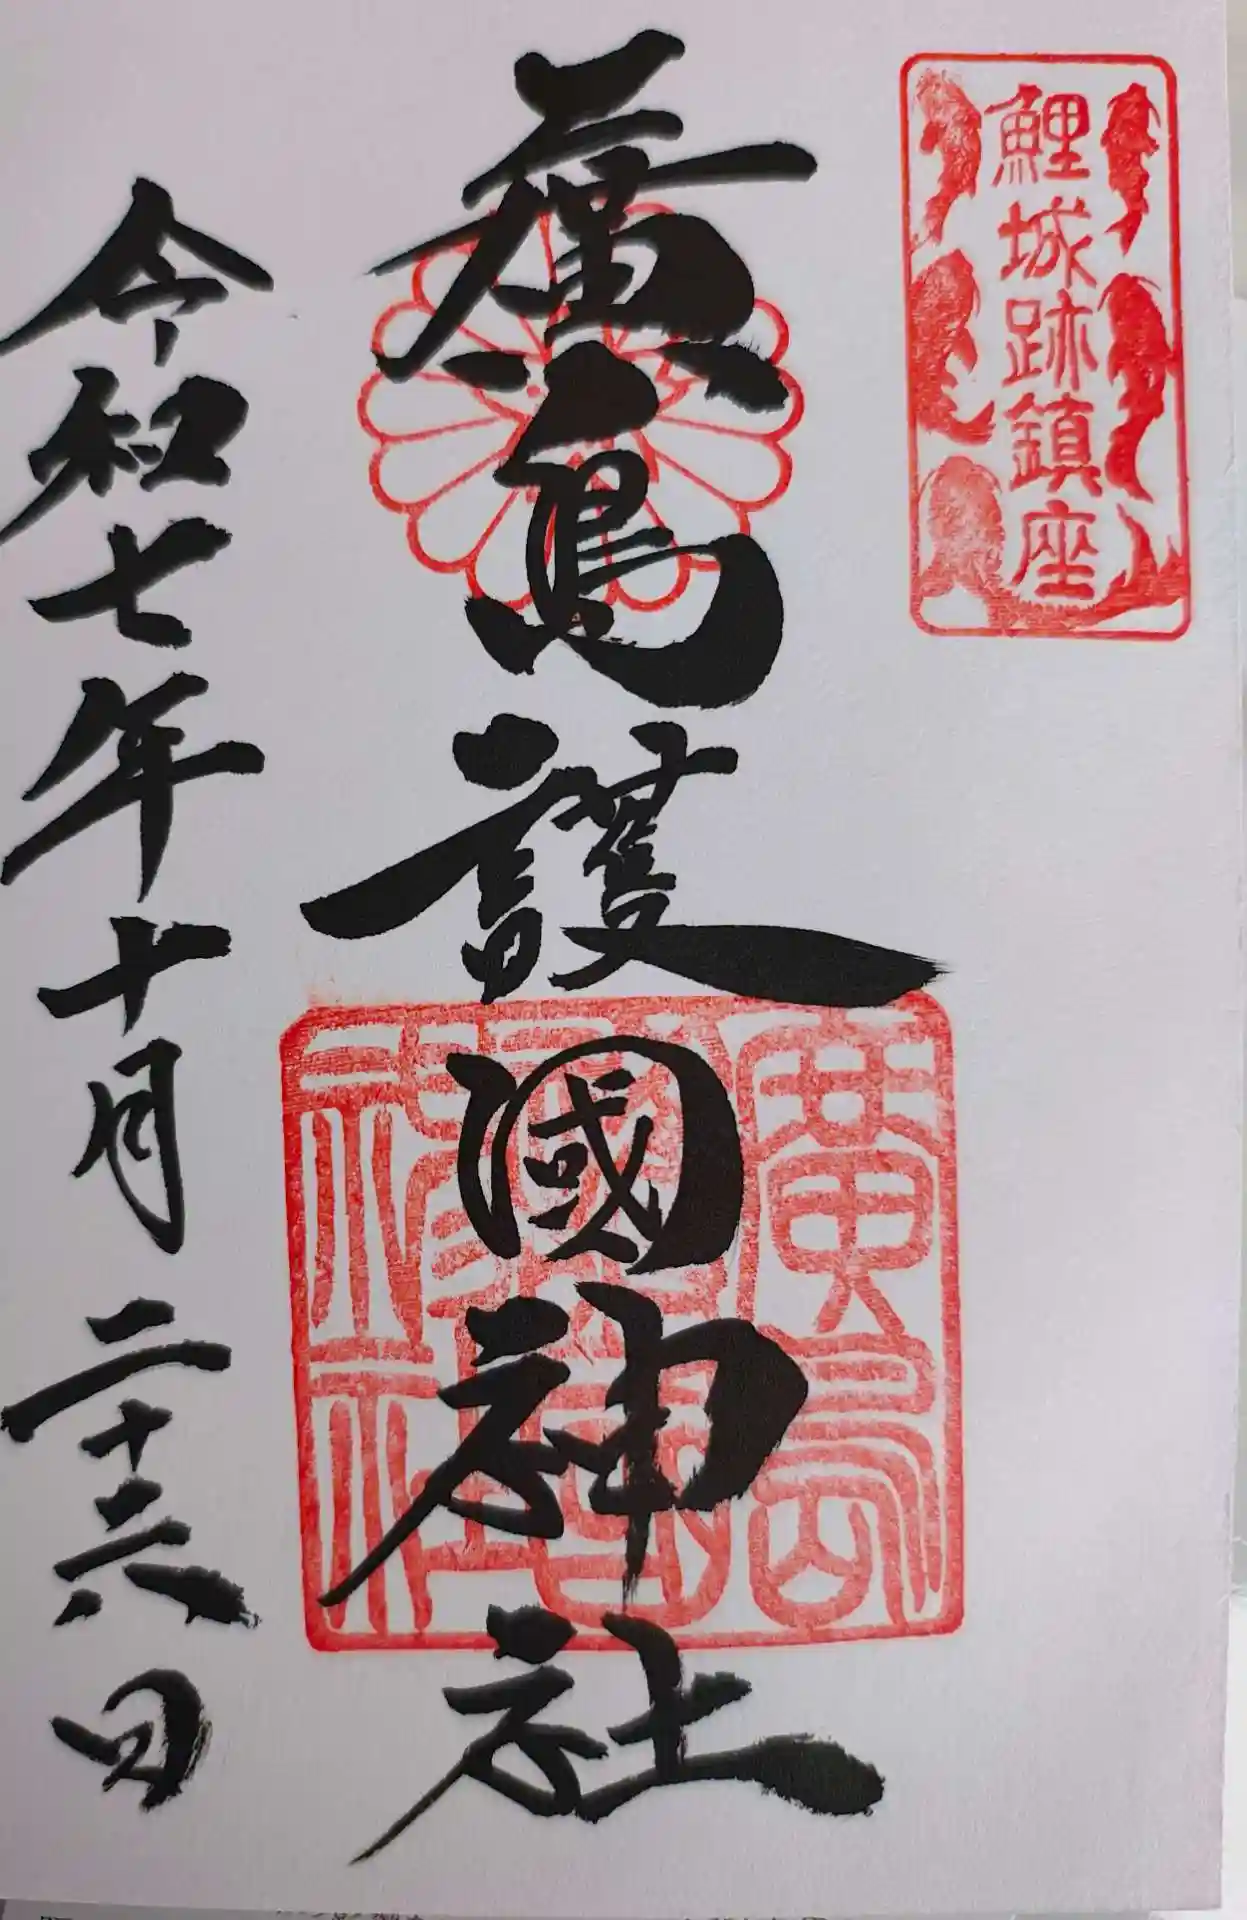 鯉城跡鎮座
廣島護國神社
廣島護國神社
令和七年十月二十六日